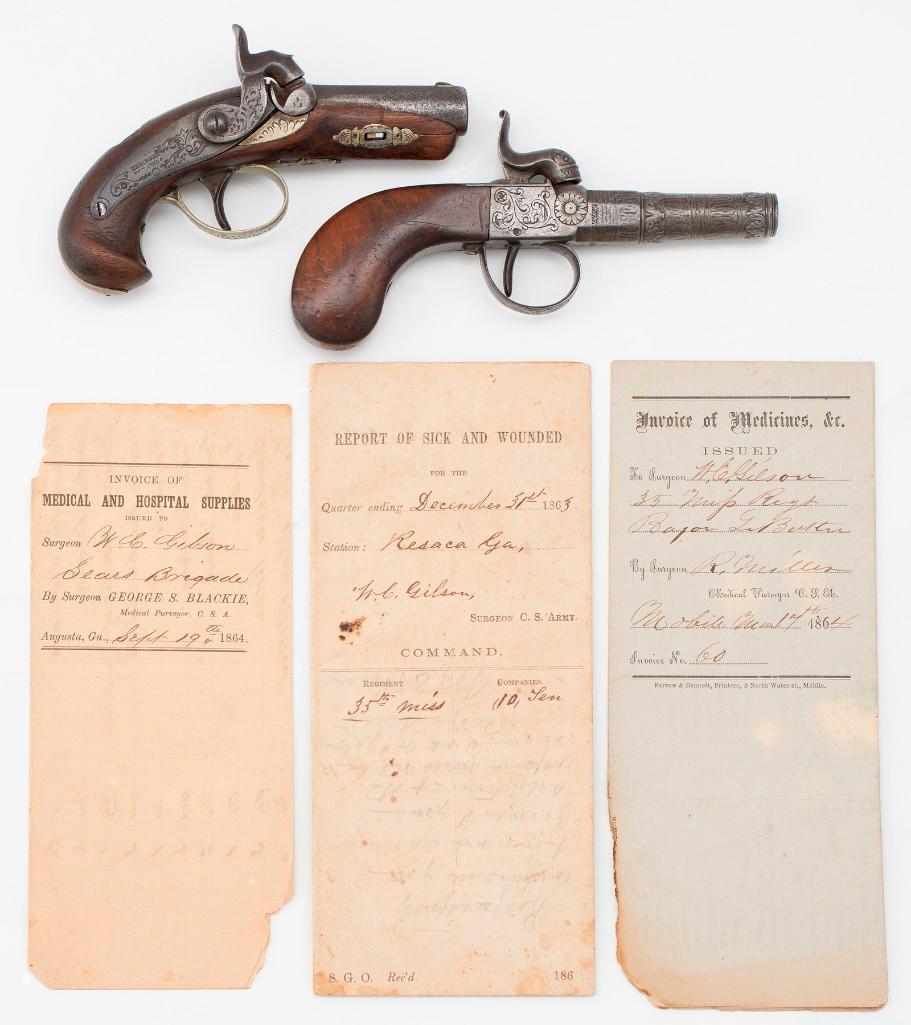 INVOICE OF
MEDICAL AND HOSPITAL SUPPLIES
ISSUED TO
Surgeon W. C. Gibson
Sears Brigade
By Surgeon GEORGE S. BLACKIE,
Medical Purveyor, C. S. A.
Augusta, Ga., Sept 19th 1864.
REPORT OF SICK AND WOUNDED
FOR THE
Quarter ending December 31st 1863.
Station: Resaca Ga,
W. C. Gilson,
SURGEON C. S. ARMY.
COMMAND.
REGIMENT COMPANIES.
35th miss 10, Ten
S. G. O. Rec'd 186
Invoice of Medicines, &c.
ISSUED
To Surgeon W. C. Gilson
35 Miss Regt
By Surgeon R. Miller
Medical Purveyor C. S. A.
Mobile Mar 17th 1864
Invoice No. 60
Farrow & Dennett, Printers, 3 North Water-st., Mobile.